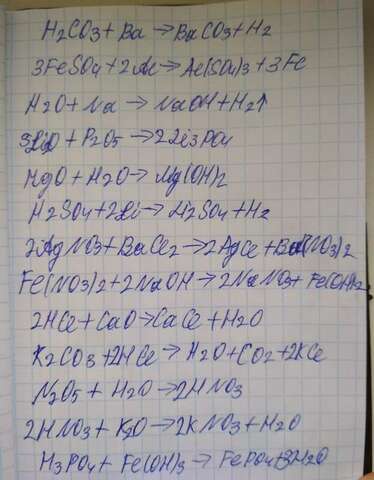 H2CO3+Ba→BaCO3+H2
3FeSO4+2Al→Al(SO4)3+3Fe
H2O+Na→NaOH+H2↑
3Li2O+P2O5→2Li3PO4
MgO+H2O→Mg(OH)2
H2SO4+2Li→Li2SO4+H2
2AgNO3+BaCl2→2AgCl+Ba(NO3)2
Fe(NO3)2+2NaOH→2NaNO3+Fe(OH)2
2HCl+CaO→CaCl+H2O
K2CO3+2HCl→H2O+CO2+2KCl
N2O5+H2O→2HNO3
2HNO3+K2O→2KNO3+H2O
H3PO4+Fe(OH)3→FePO4+3H2O